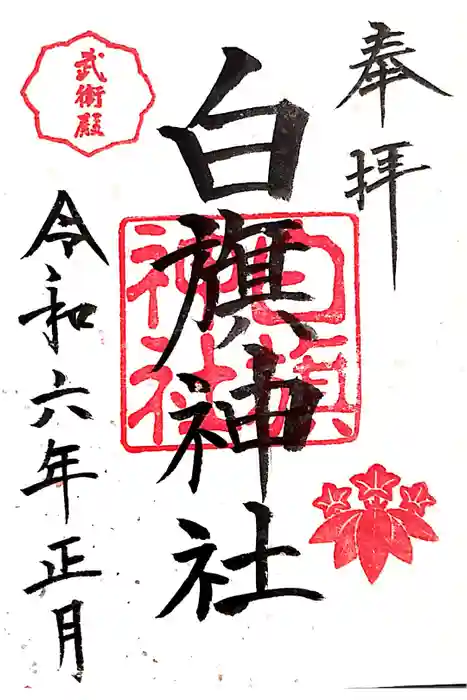 奉拝
白旗神社
白旗
神社
武術殿
令和六年正月